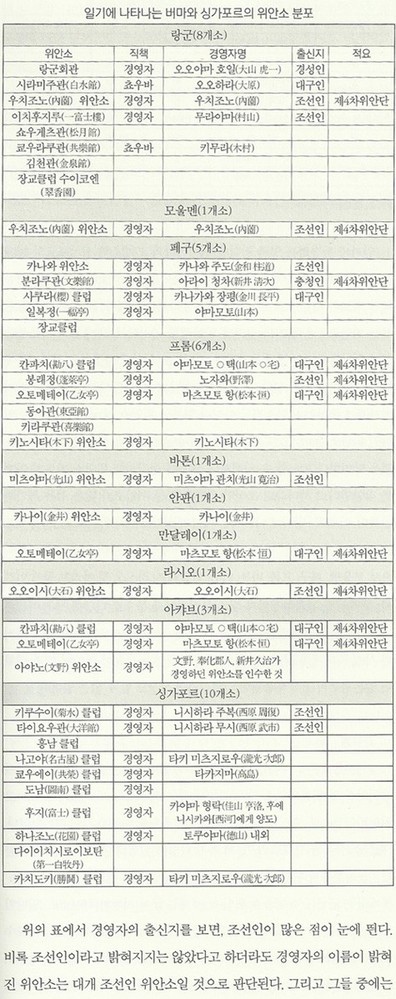 일기에 나타나는 버마와 싱가포르의 위안소 분포
랑군(8개소)
위안소 직책 경영자명 출신지 적요
랑군회관 경영자 오오야마 호일(大山 虎一) 경성인
시라미주관(白水館) 쵸우바 오오하라(大原) 대구인
우치조노(內薗) 위안소 경영자 우치조노(內薗) 조선인 제4차위안단
이치후지루(一富士樓) 경영자 무라야마(村山) 조선인
쇼우게츠관(松月館)
쿄우라쿠관(共樂館) 쵸우바 키무라(木村)
김천관(金泉館)
장교클럽 수이코엔
(翠香園)
모울멘(1개소)
우치조노(內薗) 위안소 경영자 우치조노(內薗) 조선인 제4차위안단
페구(5개소)
카나와 위안소 경영자 카나와 주도(金和 柱道) 조선인
분라쿠관(文樂館) 경영자 아라이 청차(新井 淸次) 충청인 제4차위안단
사쿠라(櫻) 클럽 경영자 카나가와 장평(金川 長平) 대구인
일복정(一福亭) 경영자 야마모토(山本)
장교클럽
프롬(6개소)
칸파치(勘八) 클럽 경영자 야마모토 ○택(山本 ○宅) 대구인 제4차위안단
봉래정(蓬萊亭) 경영자 노자와(野澤) 조선인 제4차위안단
오토메테이(乙女亭) 경영자 마츠모토 항(松本 恒) 대구인 제4차위안단
동아관(東亞館)
키라쿠관(喜樂館)
키노시타(木下) 위안소 경영자 키노시타(木下)
바톤(1개소)
미츠야마(光山) 위안소 경영자 미츠야마 관치(光山 寬治) 조선인
안판(1개소)
카나이(金井) 위안소 경영자 카나이(金井)
만달레이(1개소)
오토메테이(乙女亭) 경영자 마츠모토 항(松本 恒) 대구인 제4차위안단
라시오(1개소)
오오이시(大石) 위안소 경영자 오오이시(大石) 조선인 제4차위안단
아캬브(3개소)
칸파치(勘八) 클럽 경영자 야마모토 ○택(山本○宅) 대구인 제4차위안단
오토메테이(乙女亭) 경영자 마츠모토 항(松本 恒) 대구인 제4차위안단
아야노(文野) 위안소 경영자 文野, 奉化郡人, 新井久治가
경영하던 위안소를 인수한 것
싱가포르(10개소)
키쿠수이(菊水) 클럽 경영자 니시하라 주복(西原 周復) 조선인
타이요우관(大洋館) 경영자 니시하라 무시(西原 武市) 조선인
흥남 클럽
나고야(名古屋) 클럽 경영자 타키 미츠지로우(瀧光 次郎)
쿄우에이(共榮) 클럽 경영자 타카지마(高島)
도남(圖南) 클럽 경영자
후지(富士) 클럽 경영자 카야마 형락(佳山 亨洛, 후에
니시카와[西河]에게 양도)
하나조노(花園) 클럽 경영자 토쿠야마(德山) 내외
다이이치시로이보탄
(第一白牧丹)
카치도키(勝鬨) 클럽 경영자 타키 미츠지로우(瀧光 次郎)
위의 표에서 경영자의 출신지를 보면, 조선인이 많은 점이 눈에 띈다.
비록 조선인이라고 밝혀지지는 않았다고 하더라도 경영자의 이름이 밝혀
진 위안소는 대개 조선인 위안소일 것으로 판단된다. 그리고 그들 중에는